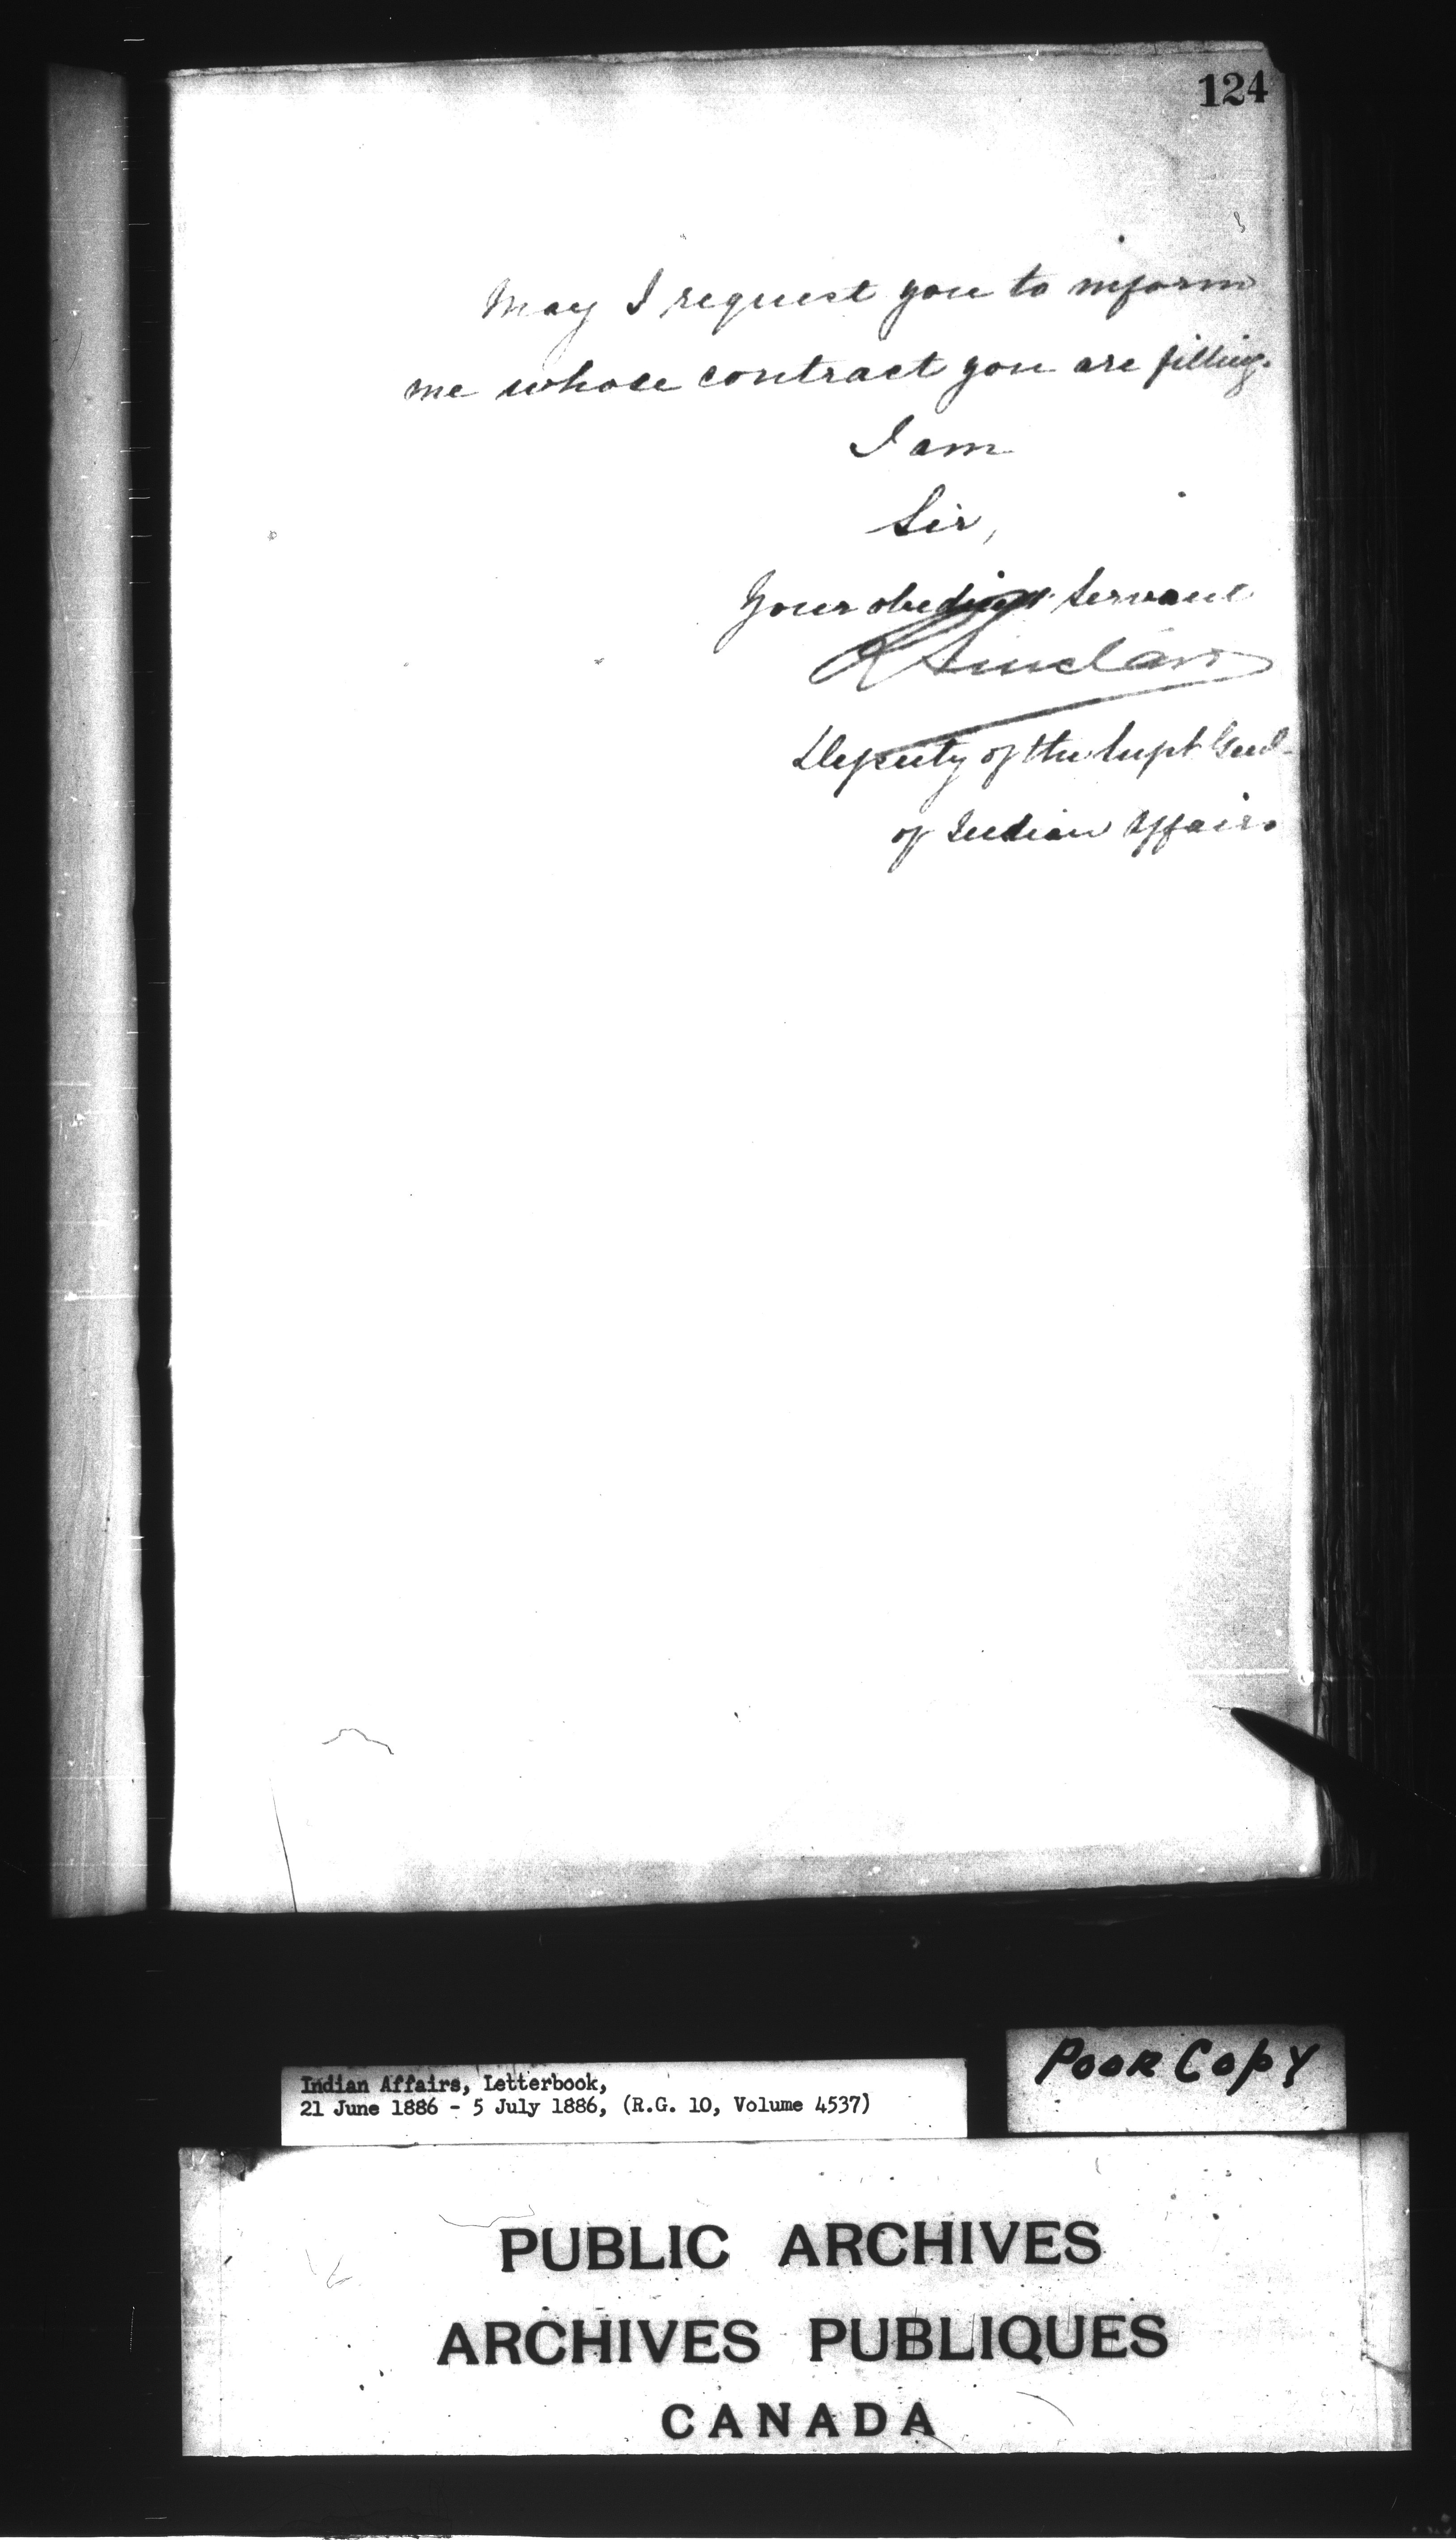 124
May I request you to inform
me whose contract you are filling.
I am
Sir,
Your obedient Servant
R Sinclair
Deputy of the Supt Genl
of Indian Affairs
Indian Affairs, Letterbook,
21 June 1886 - 5 July 1886, (R.G. 10, Volume 4537)
POOR COPY
PUBLIC ARCHIVES
ARCHIVES PUBLIQUES
CANADA